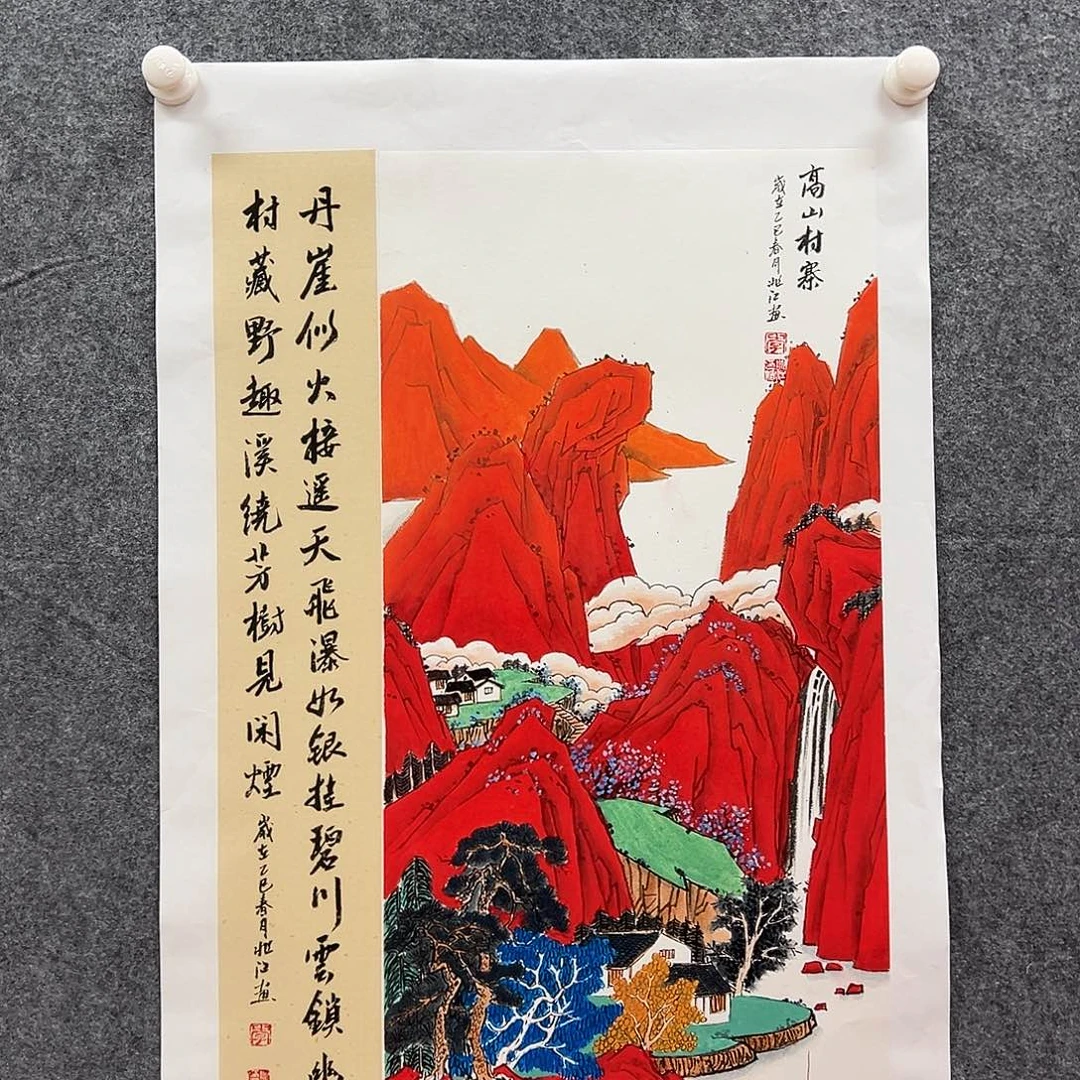 高山村寨
歲在乙巳春月兆江畫
丹崖似火接遥天飛瀑如银挂碧川雲鎖幽
村藏野趣溪繞芳樹見闲煙
歲在乙巳春月兆江畫